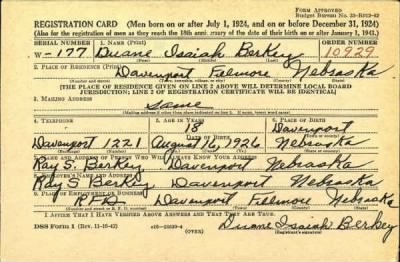 FORM APPROVED
Budget Bureau No. 33-R012-42
REGISTRATION CARD (Men born on or after July 1, 1924, and on or before December 31, 1924)
(Also for the registration of men as they reach the 18th anniversary of the date of their birth on or after January 1, 1943.)
SERIAL NUMBER 1. NAME (Print) ORDER NUMBER
W-177 Duane Isaiah Berkey 10929
(First) (Middle) (Last)
2. PLACE OF RESIDENCE (Print)
Davenport Fillmore Nebraska
(Number and street) (Town, township, village, or city) (County) (State)
[THE PLACE OF RESIDENCE GIVEN ON LINE 2 ABOVE WILL DETERMINE LOCAL BOARD
JURISDICTION; LINE 2 OF REGISTRATION CERTIFICATE WILL BE IDENTICAL]
3. MAILING ADDRESS
Same
(Mailing address if other than place indicated on line 2. If same, insert word same)
4. TELEPHONE 5. AGE IN YEARS 6. PLACE OF BIRTH
18 Davenport
DATE OF BIRTH
Davenport 1221 August 16, 1926 Nebraska
(Exchange) (Number) (Mo.) (Day) (Yr.) (State or country)
7. NAME AND ADDRESS OF PERSON WHO WILL ALWAYS KNOW YOUR ADDRESS
Ray S. Berkey Davenport Nebraska
8. EMPLOYER'S NAME AND ADDRESS
Ray S. Berkey Davenport Nebraska
9. PLACE OF EMPLOYMENT OR BUSINESS
RFD Davenport Fillmore Nebraska
(Number and street or R. F. D. number) (Town) (County) (State)
I AFFIRM THAT I HAVE VERIFIED ABOVE ANSWERS AND THAT THEY ARE TRUE.
DSS Form 1 (Rev. 11-16-42) (OVER) Duane Isaiah Berkey
(Registrant's signature)